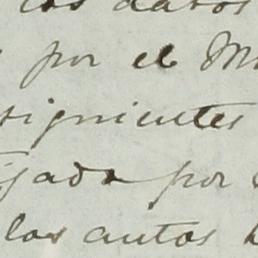 los datos
por el M
siguientes
ijada por
los autos